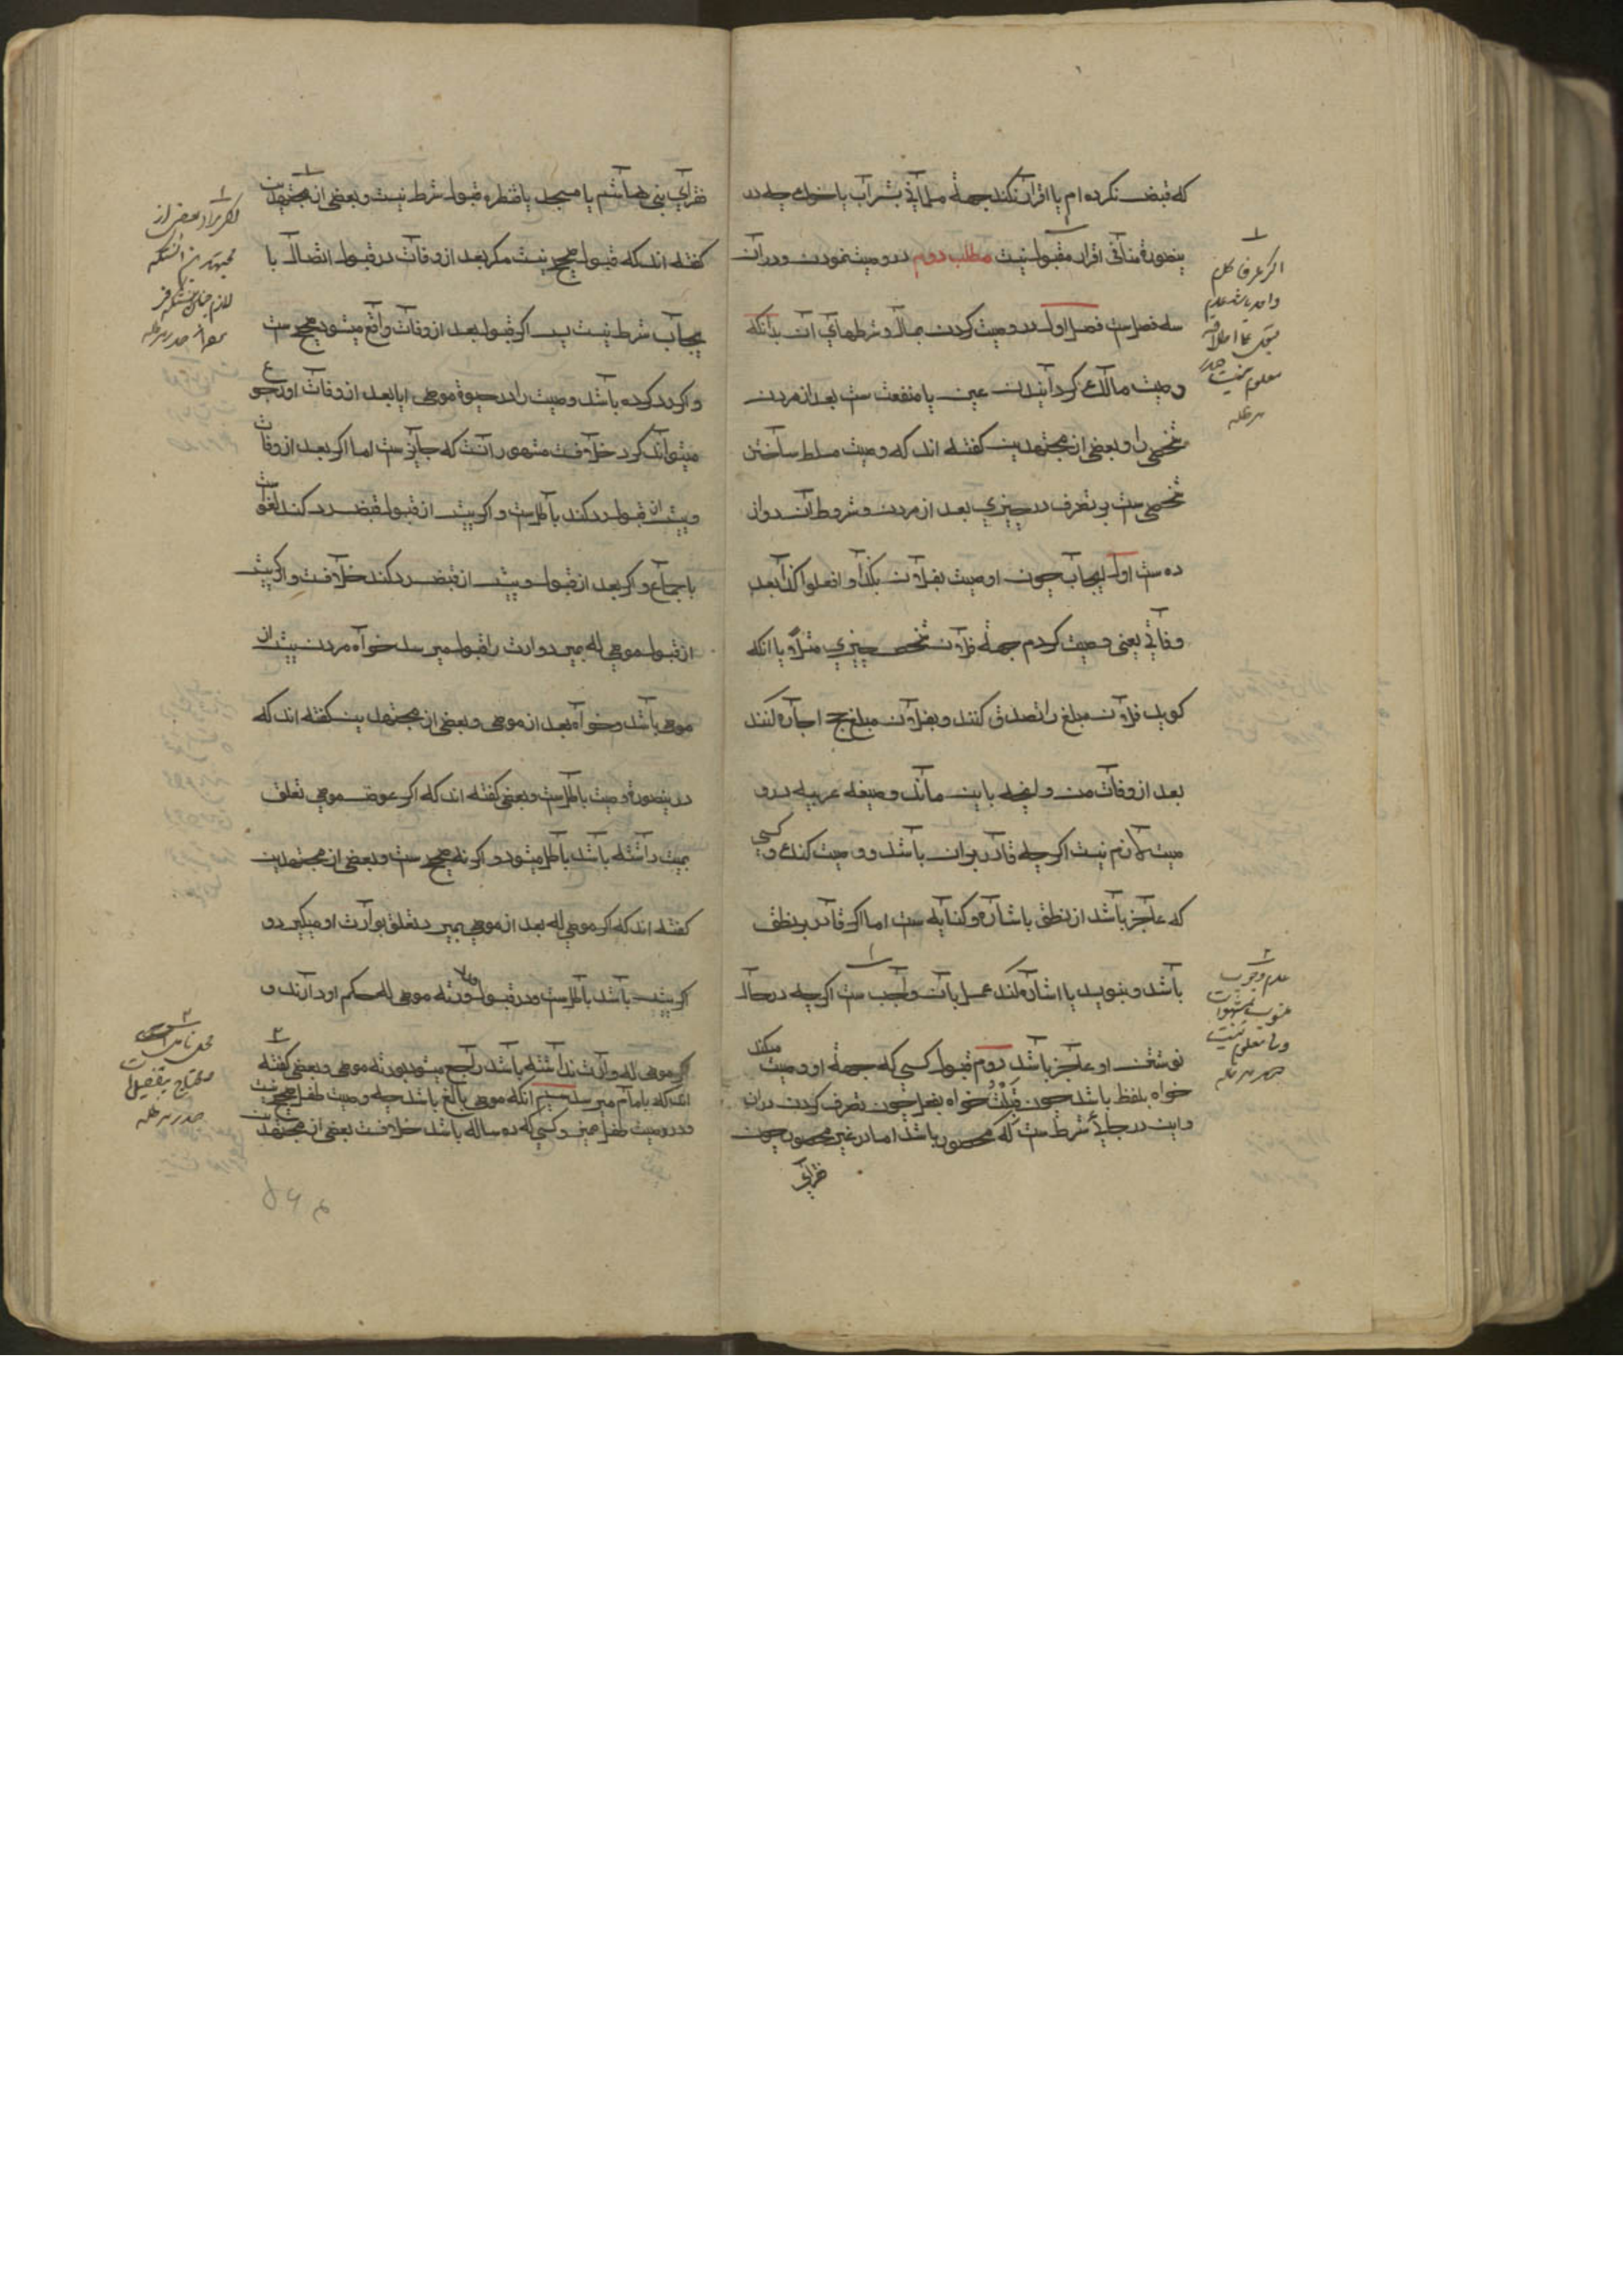 که قبض نکرده ام یا اقرار کند جهة مسلمانی بشراب یا خوك چه در
ینصورة منافی اقرار مقبول نیست مطلب دوم در وصیت نمودن و در ان
سه فصل ست فصل اول در وصیت کردن بمال و شرطهای آن بدانکه
وصیت مالك کردانیدن عین یا منفعت ست بعد از مردن
شخصی را و بعضی از مجتهدین کفته اند که وصیت مسلط ساختن
شخصی ست بر تصرف در چیزی بعد از مردن و شروط آن دواز
ده ست اول ایجاب چون اوصیت بفلان بکذا و افعلوا کذا بعد
وفاتی یعنی وصیت کردم جهة فلان شخص چیزی مثلاً و یا انکه
کوید فلان مبلغ را تصدق کنند و بفلان مبلغ حج اجاره کنند
بعد از وفات من و انچه باین ماند و صیغه عربیه در و
صیت لازم نیست اکرچه قادر بران باشد و وصیت کنده و کسی
که عاجز باشد از نطق باشاره و کنایه ست اما اکر قادر بر نطق
باشد و بنویسد یا اشاره کند عمل بآن واجب ست اکرچه در حال
نوشتن او عاجز باشد دوم قبول کسی که جهة او وصیت میکند
خواه بلفظ باشد چون قَبِلْتُ خواه بفعل چون تصرف کردن دران
واین در جائی شرط ست که محصور باشد اما در غیر محصور چون
فقرای
اکر عرفا کلام
واحد باشد عدم
معلوم نیست صدر
مد ظله
عدم وجوب
معلوم نیست
صدر مد ظله
فقرای بنی هاشم یا مسجد یا قنطره قبول شرط نیست و بعضی از مجتهدین
کفته اند که قبول صحیح نیست مکر بعد از وفات و در قبول اتصال با
یجاب شرط نیست پس اکر قبول بعد از وفات واقع میشود صحیح ست
و اکر رد کرده باشد وصیت را در حیوة موصی ایا بعد از وفات او رجوع
میتواند کرد خلافست مشهور آنست که جایز ست اما اکر بعد از وفات
و پیش از قبول رد کند باطل ست و اکر پیش از قبول قبض رد کند لغو ست
باجماع و اکر بعد از قبول و پیش از قبض رد کند خلافست و اکر پیش
از قبول موصی له بمیرد وارث را قبول میرسد خواه مردن پیش از
موصی باشد و خواه بعد از موصی و بعضی از مجتهدین کفته اند که
در ینصورة وصیت باطل ست و بعضی کفته اند که اکر عوض موصی تعلق
بمیت داشته باشد باطل میشود و اکر نه صحیح ست و بعضی از مجتهدین
کفته اند که اکر موصی له بعد از موصی بمیرد تعلق بوارث او میکیرد و
اکر پیش باشد باطل ست و در قبول ورثه موصی له حکم او دارند و
اکر موصی له وارث نداشته باشد راجع میشود بورثه موصی و بعضی کفته
اند که بامام میرسد سیم آنکه موصی بالغ باشد چه وصیت طفل صحیح نیست
و در وصیت طفل ممیز و کسی که ده ساله باشد خلافست بعضی از مجتهدین
بعض از
مجتهدین
محل تامل است
و محتاج بتفصیل است
صدر مد ظله